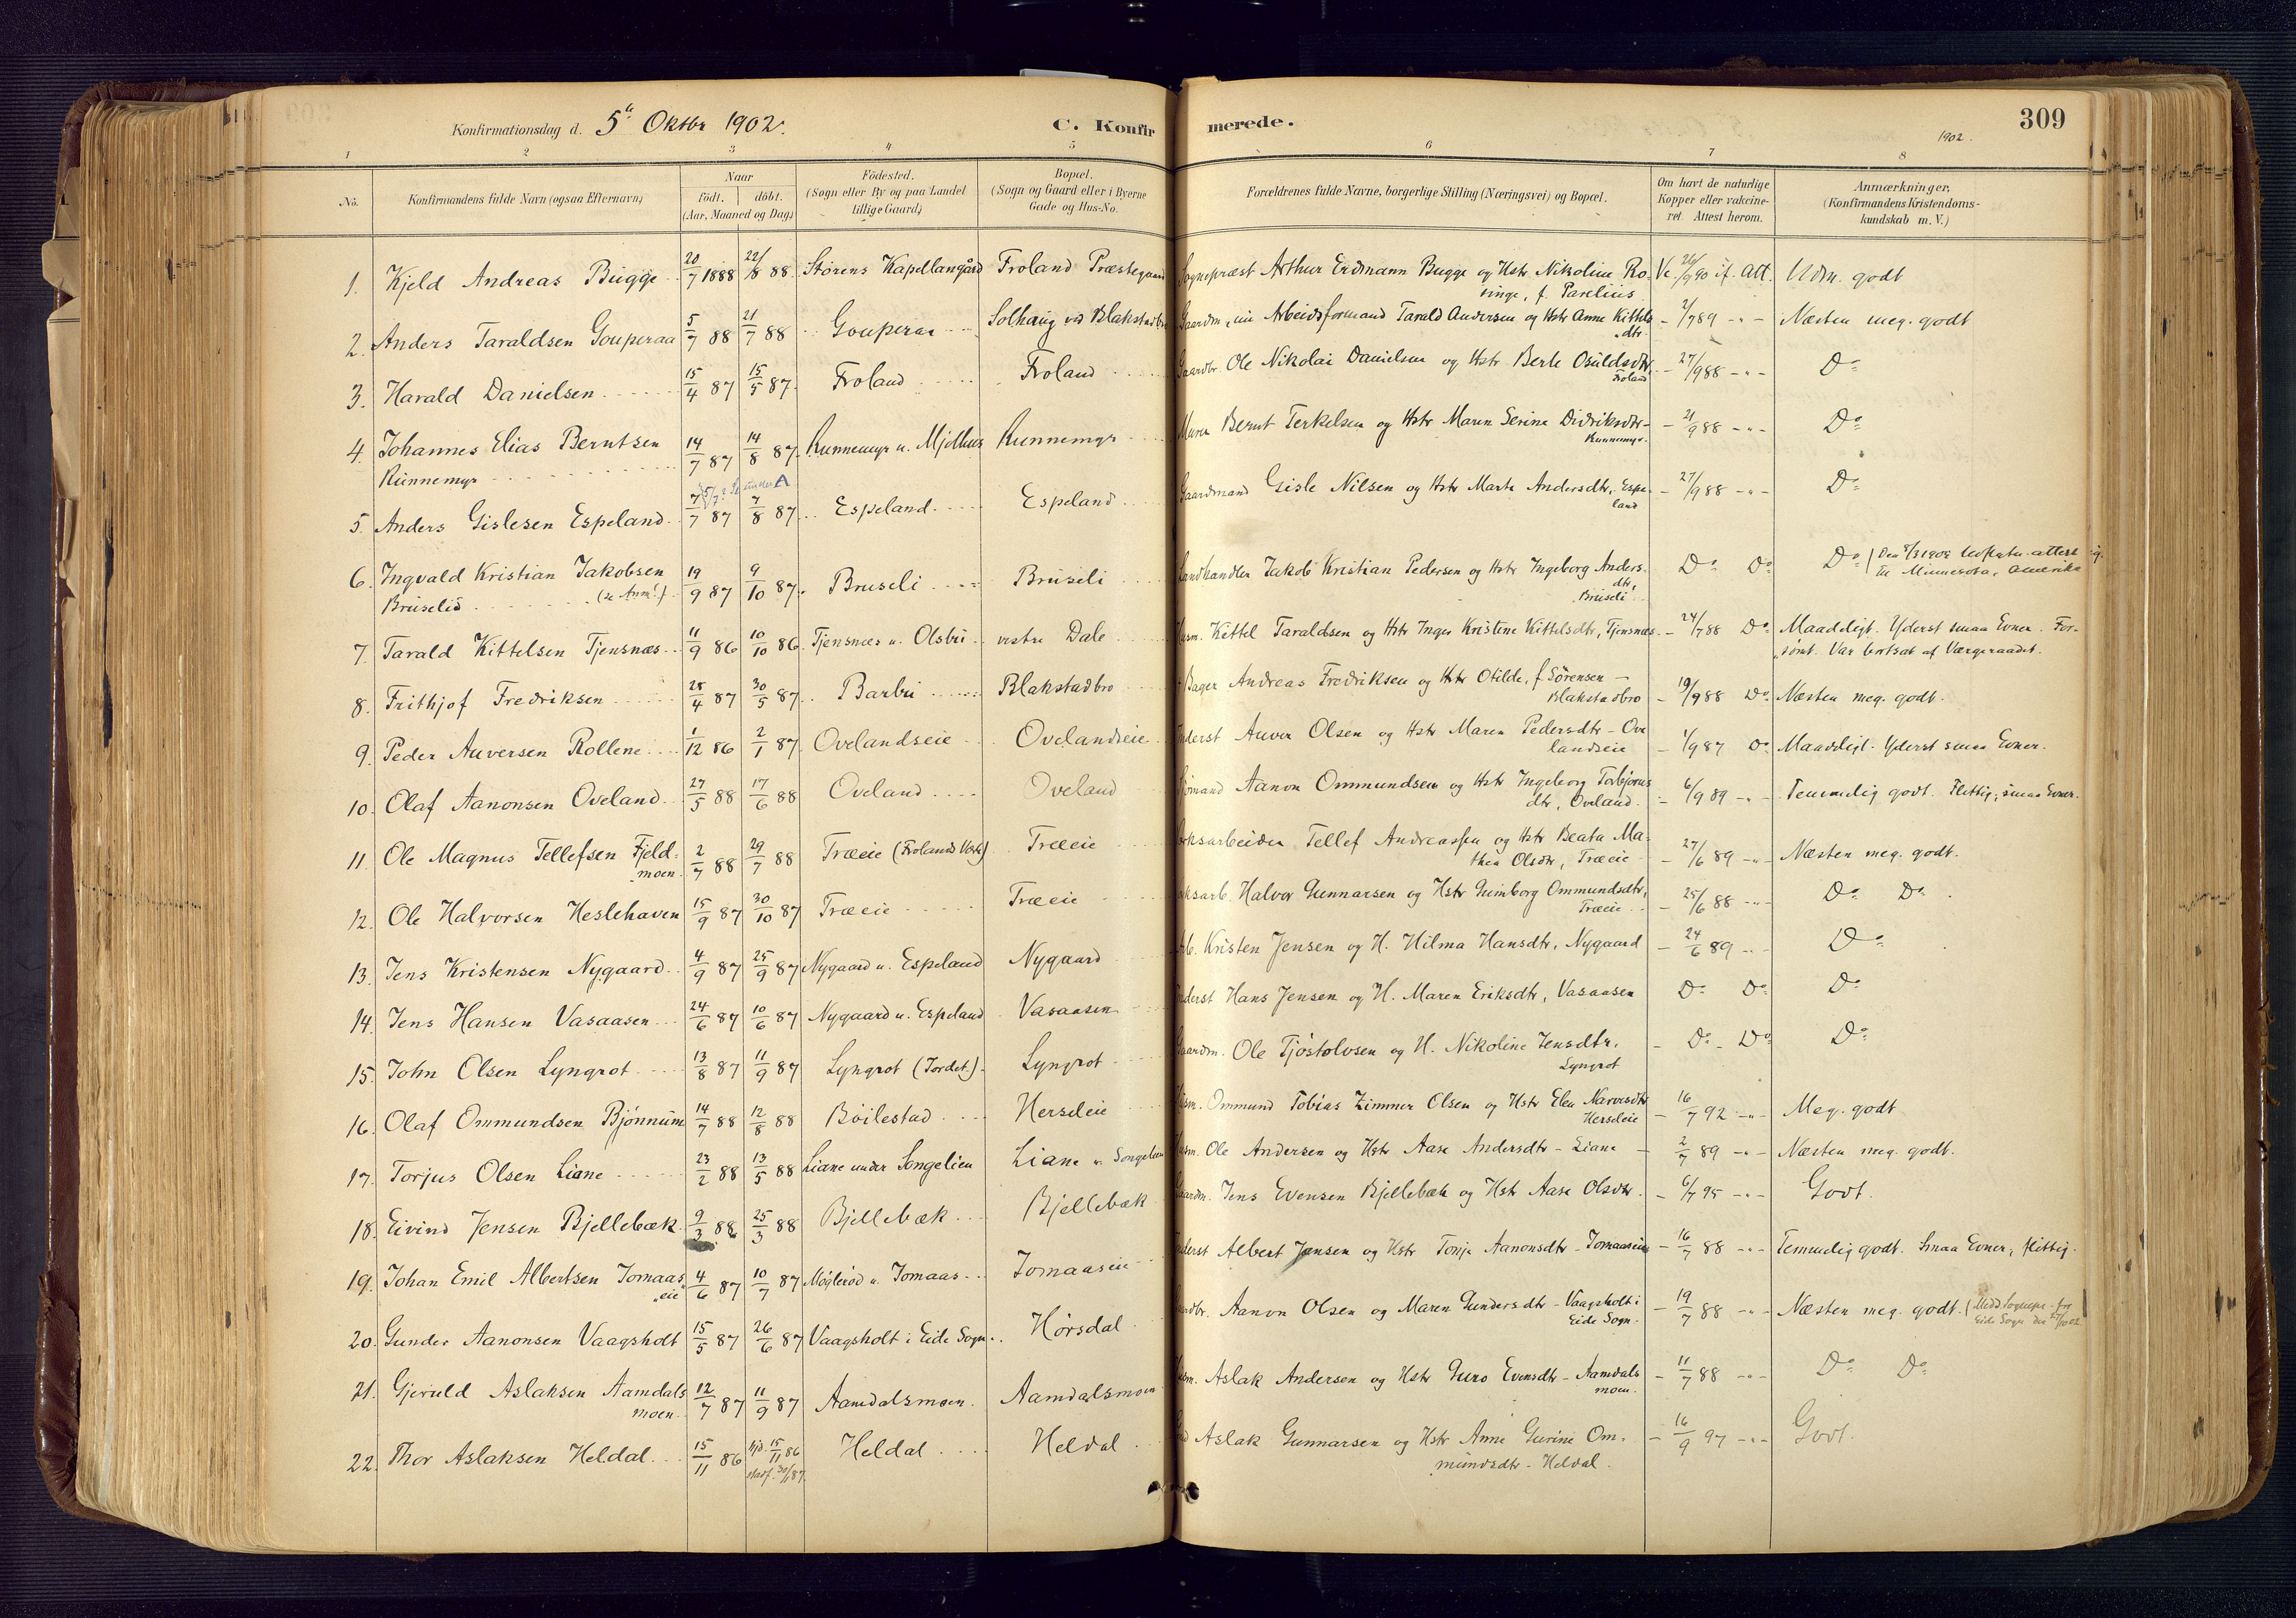 Konfirmationsdag d. 5te Oktbr 1902.
C. Konfirmerede.
309
1902.
1 2 3 4 5 6 7 8
No.
Konfirmandens fulde Navn (ogsaa Efternavn)
Naar
født. døbt.
(Aar, Maaned og Dag)
Fødested.
(Sogn eller By og paa Landet
tillige Gaard)
Bopæl.
(Sogn og Gaard eller i Byerne
Gade og Hus-No.
Forældrenes fulde Navne, borgerlige Stilling (Næringsvei) og Bopæl.
Om havt de naturlige
Kopper eller vakcine-
ret. Attest herom.
Anmærkninger,
(Konfirmandens Kristendoms-
kundskab m. V.)
1. Kjeld Andreas Bugge 20/7 1888 22/8 88. Størens Kapellangård Froland Præstegaard Sognepræst Arthur Erdmann Bugge og Hstr Nikoline Ro- Vc. 26/9 90 if. Att. Udm. godt
singe, f. Parelius
2. Anders Taraldsen Gouperaa 5/7 88 21/7 88 Gouperaa Solhaug ved Blakstadbro Gaardm., nu Arbeidsformand Tarald Andersen og Hstr Anne Kittels - 2/7 89 -"- Næsten meg. godt
dtr.
3. Harald Danielsen 15/4 87 15/5 87. Froland Froland Gaardbr. Ole Nikolai Danielsen og Hstr Berte Osuldsdtr. - 27/9 88 -"- Do
Froland
4. Johannes Elias Berntsen 14/7 87 14/8 87. Runnemyr u. Mjølhus Runnemyr Murer Bernt Terkelsen og Hstr Maren Serine Didriksdtr - 21/9 88 -"- Do
Runnemyr Runnemyr.
5. Anders Gislesen Espeland 7/7 87 7/8 87 Espeland Espeland Gaardmand Gisle Nilsen og Hstr Marte Andersdtr, Espe- - 27/9 88 -"- Do
land
6. Ingvald Kristian Jakobsen 19/9 87 9/10 87. Bruseli Bruseli Landhandler Jakob Kristian Pedersen og Hstr Ingeborg Anders- Do Do Do (Den 8/3 1909 attest
dtr,
Bruselid (se Anm.) Bruseli til Minnesota, Amerika
7. Tarald Kittelsen Tjensnæs 11/9 86 10/10 86. Tjensnæs u. Olsbu vestre Dale Husm. Kittel Taraldsen og Hstr Inger Kristine Kittelsdtr, Tjensnæs - 24/7 88 Do Maadeligt. Yderst smaa Evner. For-
sømt. Var bortsat af Værgeraadet.
8. Frithjof Fredriksen 28/4 87 30/5 87. Barbu Blakstadbro Bager Andreas Fredriksen og Hstr Otilde, f. Sørensen - - 19/9 88 Do Næsten meg. godt.
Blakstadbro
9. Peder Auversen Rollene 1/12 86 2/1 87. Ovelandseie Ovelandseie Inderst Auver Olsen og Hstr Maren Pedersdtr - Ove - 1/9 87 Do Maadeligt. Yderst smaa Evner.
landseie
10. Olaf Aanonsen Oveland 27/5 88 17/6 88 Oveland Oveland Sømand Aanon Ommundsen og Hstr Ingeborg Torbjørns - 6/9 89 -"- Temmelig godt. Flittig, smaa Evner.
dtr, Oveland.
11. Ole Magnus Tellefsen Fjeld- 2/7 88 29/7 88 Træeie (Frolands Verk) Træeie Verksarbeider Tellef Andreassen og Hstr Beata Ma- - 27/6 89 -"- Næsten meg. godt.
moen thea Olsdtr, Træeie
12. Ole Halvorsen Heslehaven 15/9 87 30/10 87 Træeie Træeie Verksarb. Halvor Gunnarsen og Hstr Gunborg Ommundsdtr, - 25/6 88 -"- Do Do
Træeie
13. Jens Kristensen Nygaard 4/9 87 25/9 87 Nygaard u. Espeland Nygaard Arb. Kristen Jensen og H. Hilma Hansdtr, Nygaard - 24/6 89 -"- Do
14. Jens Hansen Vasaasen 24/6 87 10/6 87 Nygaard u. Espeland Vasaasen Inderst Hans Jensen og H. Maren Eriksdtr, Vasaasen Do Do Do
15. John Olsen Lyngrot 13/8 87 11/9 87 Lyngrot (Jordet.) Lyngrot Gaardm. Ole Tjøstolvsen og H. Nikoline Jensdtr. - Do - Do Do
Lyngrot
16. Olaf Ommundsen Bjønnum 14/7 88 12/8 88 Bøilestad Herseleie Husm. Ommund Tobias Zimmer Olsen og Hstr Elen Narvesdtr - 16/7 92 -"- Meg. godt
Herseleie
17. Torjus Olsen Liane 23/2 88 13/5 88 Liane under Songelien Liane u. Songelien Husm. Ole Andersen og Hstr Aase Andersdtr - Liane - 2/7 89 -"- Næsten meg. godt.
18. Eivind Jensen Bjellebæk 9/3 88 25/3 88 Bjellebæk Bjellebæk Gaardm. Jens Evensen Bjellebæk og Hstr Aase Olsdtr. - 6/7 95 -"- Godt.
19. Johan Emil Albertsen Jomaas 4/6 87 10/7 87 Møglerød u. Jomaas Jomaaseie Inderst Albert Jensen og Hstr Tonje Aanonsdtr - Jomaaseie - 16/7 88 -"- Temmelig godt. Smaa Evner, flittig.
eie
20. Gunder Aanonsen Vaagsholt 15/5 87 26/6 87 Vaagsholt i Eide Sogn Hørsdal Gaardbr. Aanon Olsen og Maren Gundersdtr - Vaagsholt i - 19/7 88 -"- Næsten meg. godt. (Medd Sognepr. for
Eide Sogn. Eide Sogn den 27/10 02
21. Gjeruld Aslaksen Aamdals 12/7 87 11/9 87 Aamdalsmoen. Aamdalsmoen Husm. Aslak Andersen og Hstr Guro Evensdtr - Aamdals - 11/7 88 -"- Do Do
moen. moen.
22. Thor Aslaksen Heldal 15/11 86 hjd. 15/11 86 Heldal Heldal Aslak Gunnarsen og Hstr Anne Gurine Om- - 16/9 97 -"- Godt.
stadf. 30/1 87. mundsdtr - Heldal.